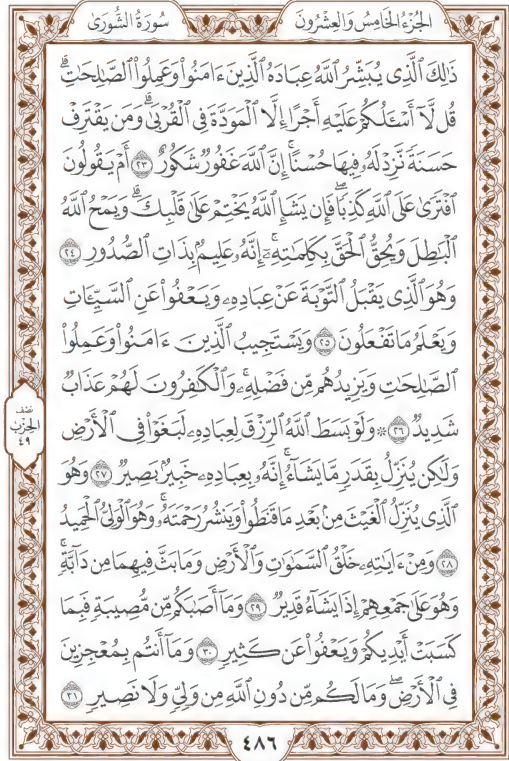 الجُزْءُ الخَامِسُ وَالعِشْرُونَ
سُورَةُ الشُّورَىٰ
ذَٰلِكَ ٱلَّذِي يُبَشِّرُ ٱللَّهُ عِبَادَهُ ٱلَّذِينَ ءَامَنُواْ وَعَمِلُواْ ٱلصَّٰلِحَٰتِۗ
قُل لَّآ أَسْـَٔلُكُمْ عَلَيْهِ أَجْرًا إِلَّا ٱلْمَوَدَّةَ فِي ٱلْقُرْبَىٰۗ وَمَن يَقْتَرِفْ
حَسَنَةً نَّزِدْ لَهُۥ فِيهَا حُسْنًاۚ إِنَّ ٱللَّهَ غَفُورٌ شَكُورٌ ٢٣ أَمْ يَقُولُونَ
ٱفْتَرَىٰ عَلَى ٱللَّهِ كَذِبًاۖ فَإِن يَشَإِ ٱللَّهُ يَخْتِمْ عَلَىٰ قَلْبِكَۗ وَيَمْحُ ٱللَّهُ
ٱلْبَٰطِلَ وَيُحِقُّ ٱلْحَقَّ بِكَلِمَٰتِهِۦٓۚ إِنَّهُۥ عَلِيمٌۢ بِذَاتِ ٱلصُّدُورِ ٢٤
وَهُوَ ٱلَّذِي يَقْبَلُ ٱلتَّوْبَةَ عَنْ عِبَادِهِۦ وَيَعْفُواْ عَنِ ٱلسَّيِّـَٔاتِ
وَيَعْلَمُ مَا تَفْعَلُونَ ٢٥ وَيَسْتَجِيبُ ٱلَّذِينَ ءَامَنُواْ وَعَمِلُواْ
ٱلصَّٰلِحَٰتِ وَيَزِيدُهُم مِّن فَضْلِهِۦۚ وَٱلْكَٰفِرُونَ لَهُمْ عَذَابٌ
شَدِيدٌ ٢٦ ۞ وَلَوْ بَسَطَ ٱللَّهُ ٱلرِّزْقَ لِعِبَادِهِۦ لَبَغَوْاْ فِي ٱلْأَرْضِ
وَلَٰكِن يُنَزِّلُ بِقَدَرٍ مَّا يَشَآءُۚ إِنَّهُۥ بِعِبَادِهِۦ خَبِيرٌۢ بَصِيرٌ ٢٧ وَهُوَ
ٱلَّذِي يُنَزِّلُ ٱلْغَيْثَ مِنۢ بَعْدِ مَا قَنَطُواْ وَيَنشُرُ رَحْمَتَهُۥۚ وَهُوَ ٱلْوَلِيُّ ٱلْحَمِيدُ
٢٨ وَمِنْ ءَايَٰتِهِۦ خَلْقُ ٱلسَّمَٰوَٰتِ وَٱلْأَرْضِ وَمَا بَثَّ فِيهِمَا مِن دَآبَّةٍۚ
وَهُوَ عَلَىٰ جَمْعِهِمْ إِذَا يَشَآءُ قَدِيرٌ ٢٩ وَمَآ أَصَٰبَكُم مِّن مُّصِيبَةٍ فَبِمَا
كَسَبَتْ أَيْدِيكُمْ وَيَعْفُواْ عَن كَثِيرٍ ٣٠ وَمَآ أَنتُم بِمُعْجِزِينَ
فِي ٱلْأَرْضِۖ وَمَا لَكُم مِّن دُونِ ٱللَّهِ مِن وَلِيٍّ وَلَا نَصِيرٍ ٣١
نصف
الحزب
٤٩
٤٨٦